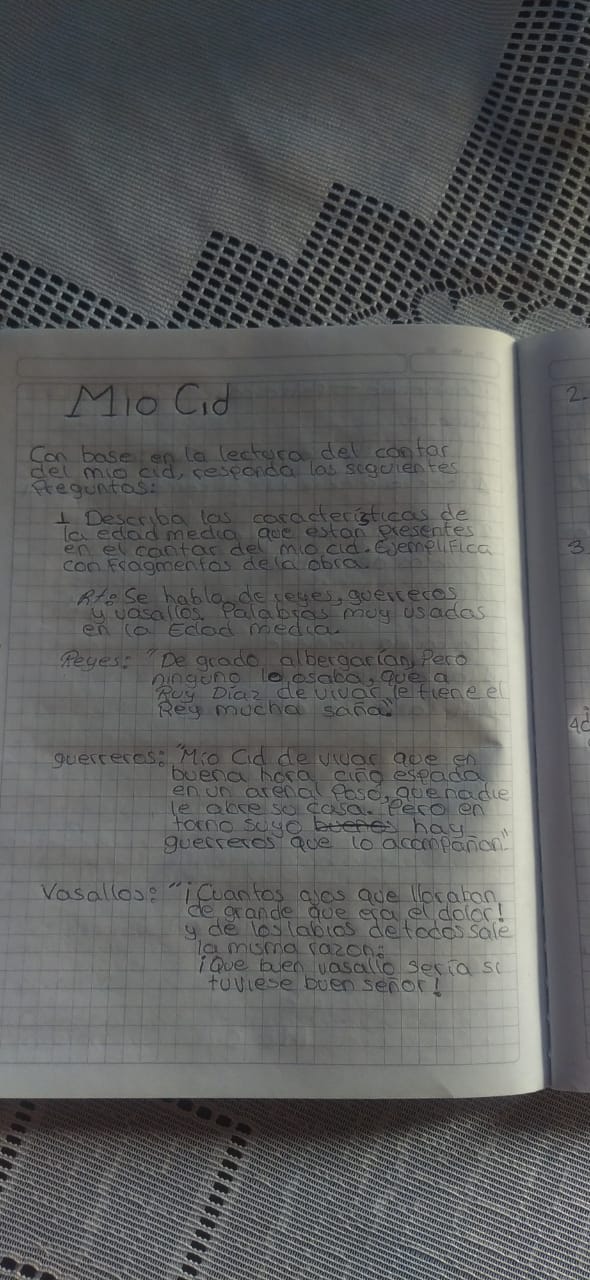 Mio Cid
Con base en la lectura del cantar
del mio cid, responda las siguientes
Preguntas:
1 Describa las características de
la edad media que estan presentes
en el cantar del mio cid. Ejemplifica
con Fragmentos de la obra.
Rta: Se habla de reyes, guerreros
y vasallos. Palabras muy usadas
en la Edad media.
Reyes: "De grado albergarían, Pero
ninguno lo osaba, que a
Ruy Díaz de vivar le tiene el
Rey mucha saña."
guerreros: "Mio Cid de vivar que en
buena hora ciño espada
en un arenal Poso, que nadie
le abre su casa. Pero en
torno suyo buenos hay
guerreros que lo acompañan."
Vasallos: "¡Cuantos ojos que lloraron
de grande que era el dolor!
y de los labios de todos sale
la misma razon:
¡Que buen vasallo sería si
tuviese buen señor!
2.
3